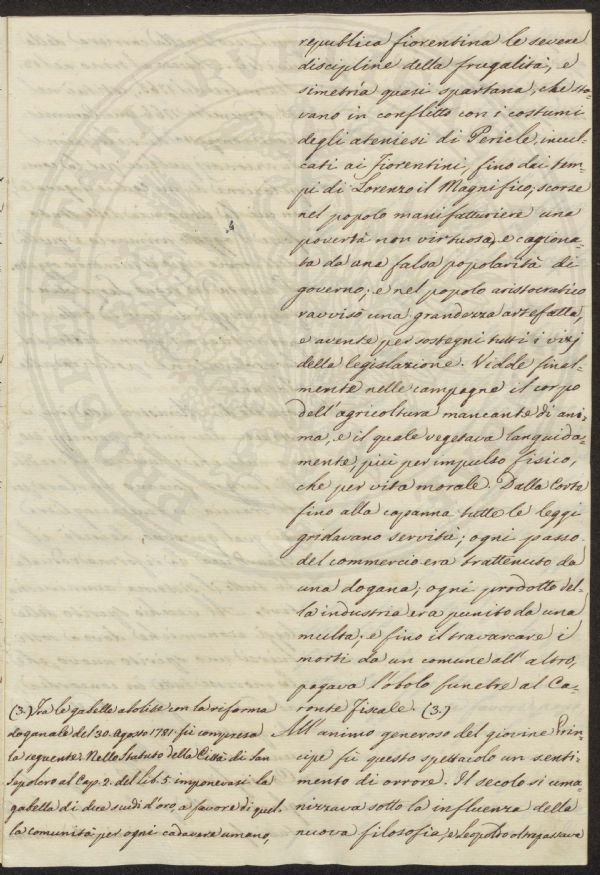 republica fiorentina le severe
discipline della frugalità, e
simetria quasi spartana, che sta-
vano in conflitto con i costumi
degli ateniesi di Pericle, incul-
cati ai Fiorentini, fino dai tem-
pi di Lorenzo il Magnifico, scorse
nel popolo manifatturiere una
povertà non virtuosa, e cagiona-
ta da una falsa popolarità di
governo; e nel popolo aristocratico
ravvisò una grandezza artefatta,
e avente per sostegni tutti i vizj
della legislazione. Vidde final-
mente nelle campagne il corpo
dell'agricoltura mancante di ani-
ma, e il quale vegetava languida-
mente, più per impulso fisico,
che per vita morale. Dalla Corte
fino alla capanna tutte le leggi
gridavano servitù; ogni passo
del commercio era trattenuto da
una dogana; ogni prodotto del-
la industria era punito da una
multa; e fino il travarcare i
morti da un comune all'altro,
pagava l'obolo funebre al Ca-
ronte Fiscale. (3.)
All'animo generoso del giovine Prin-
cipe fù questo spettacolo un senti-
mento di orrore. Il secolo si uma-
nizzava sotto la influenza della
nuova filosofia, e Leopoldo oltrapassava
(3.) Tra le gabelle abolite con la riforma
doganale del 30. Agosto 1781. fù compresa
la seguente. Nello Statuto della Città di San
Sepolcro al Cap. 2. del lib. 5. imponevasi la
gabella di due scudi d'oro, a favore di quel-
la comunità per ogni cadavere umano,